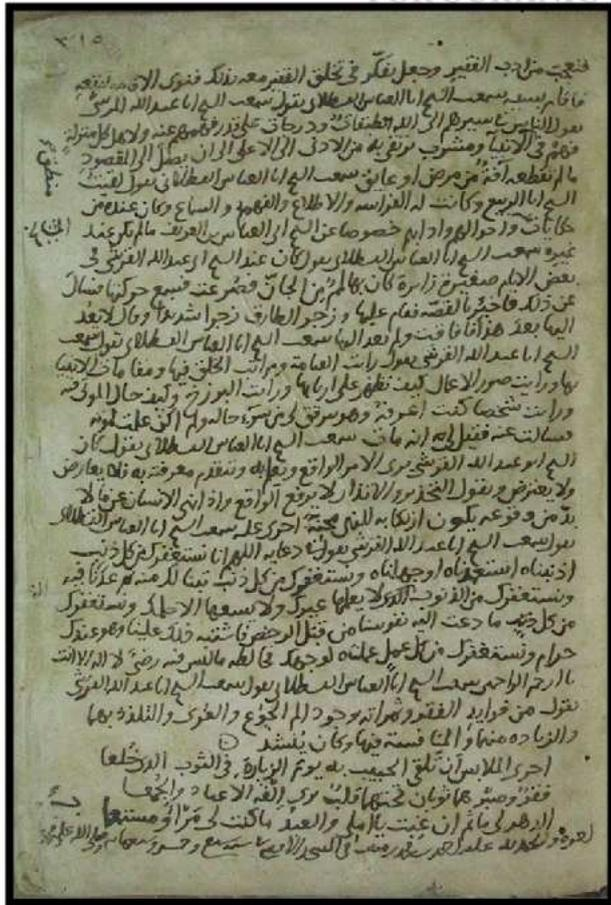 ٣١٥
فتعجب من ادب الفقير وجعل يفكر في تخلق الفقير معه بذلك فنوى الاقامة
سمعت الشيخ ابا العباس القسطلاني يقول سمعت الشيخ ابا عبد الله القرشي
يقول الناس في سيرهم الى الله الطبقات ودرجات على قدر فهمهم عنه ولاهل كل منزلة
فهم في الانبيا ومشرب يرتقي به من الادنى الى الاعلى الى ان يصل الى المقصود
ما لم تقطعه آفة من مرض او عايق سمعت الشيخ ابا العباس القسطلاني يقول لقيت
الشيخ ابا الربيع وكانت له الفراسه والاطلاع والفهم والسماع وكان عنده من
حكايات واحوالهم وادابهم خصوصا عن الشيخ ابي العباس بن العريف ما لم يكن عند
غيره سمعت الشيخ ابا العباس القسطلاني يقول كان عند الشيخ ابي عبد الله القرشي في
بعض الايام صغيرة زايرة كان بها لمم من الجان فصرعت فسمع حركتها فسأل
عن ذلك فاخبر بالقصه فقام عليها وزجر الطارق زجرا شديدا وقال لا تعد
اليها بعد هذا فافاقت ولم يعد اليها سمعت الشيخ ابا العباس القسطلاني يقول سمعت
الشيخ ابا عبد الله القرشي يقول رايت القيامة ومراتب الخلق فيها ومقامات الانبيا
بها ورايت صور الاعمال كيف تظهر على اربابها ورايت البرزخ وكيف حال الموتى فيه
ورايت شخصا كنت اعرفه وهو من سوء حاله ولم اكن علمت بموته
فسالت عنه فقيل لي انه مات سمعت الشيخ ابا العباس القسطلاني يقول كان
الشيخ ابو عبد الله القرشي يرى الامر الواقع ويعلم به وتتقدم معرفته به فلا يعارض
ولا يعترض ويقول التحذير والانذار لا يرفع الواقع واذا نهي الانسان عن ما لا
بد من وقوعه يكون ارتكابه للنهي محنة اخرى عليه سمعت الشيخ ابا العباس القسطلاني
يقول سمعت الشيخ ابا عبد الله القرشي يقول في دعايه اللهم انا نستغفرك من كل ذنب
اذنبناه استعمدناه او جهلناه ونستغفرك من كل ذنب تبنا لك منه ثم عدنا فيه
ونستغفرك من الذنوب التي لا يعلمها غيرك ولا يسعها الا حلمك ونستغفرك
من كل ما دعت اليه نفوسنا من قبل الرخص فاشتبه ذلك علينا وهو عندك
حرام ونستغفرك من كل عمل عملناه لوجهك فخالطه ما ليس فيه رضى لا اله الا انت
يا ارحم الراحمين سمعت الشيخ ابا العباس القسطلاني يقول سمعت الشيخ ابا عبد الله القرشي
يقول من فوايد الفقر وثمراته وجود الم الجوع والعرى والتلذذ بهما
والزياده منهما والمنافسة فيها وكان ينشد
احرى الملابس ان تلقى الحبيب به يوم الزيارة في الثوب الذي خلعا
فقر وصبر هما ثوبان تحتهما قلب يرى الفه الاعياد والجمعا
الدهر لي ماتم ان غبت يا املي والعيد ما كنت لي مرأى ومستمعا